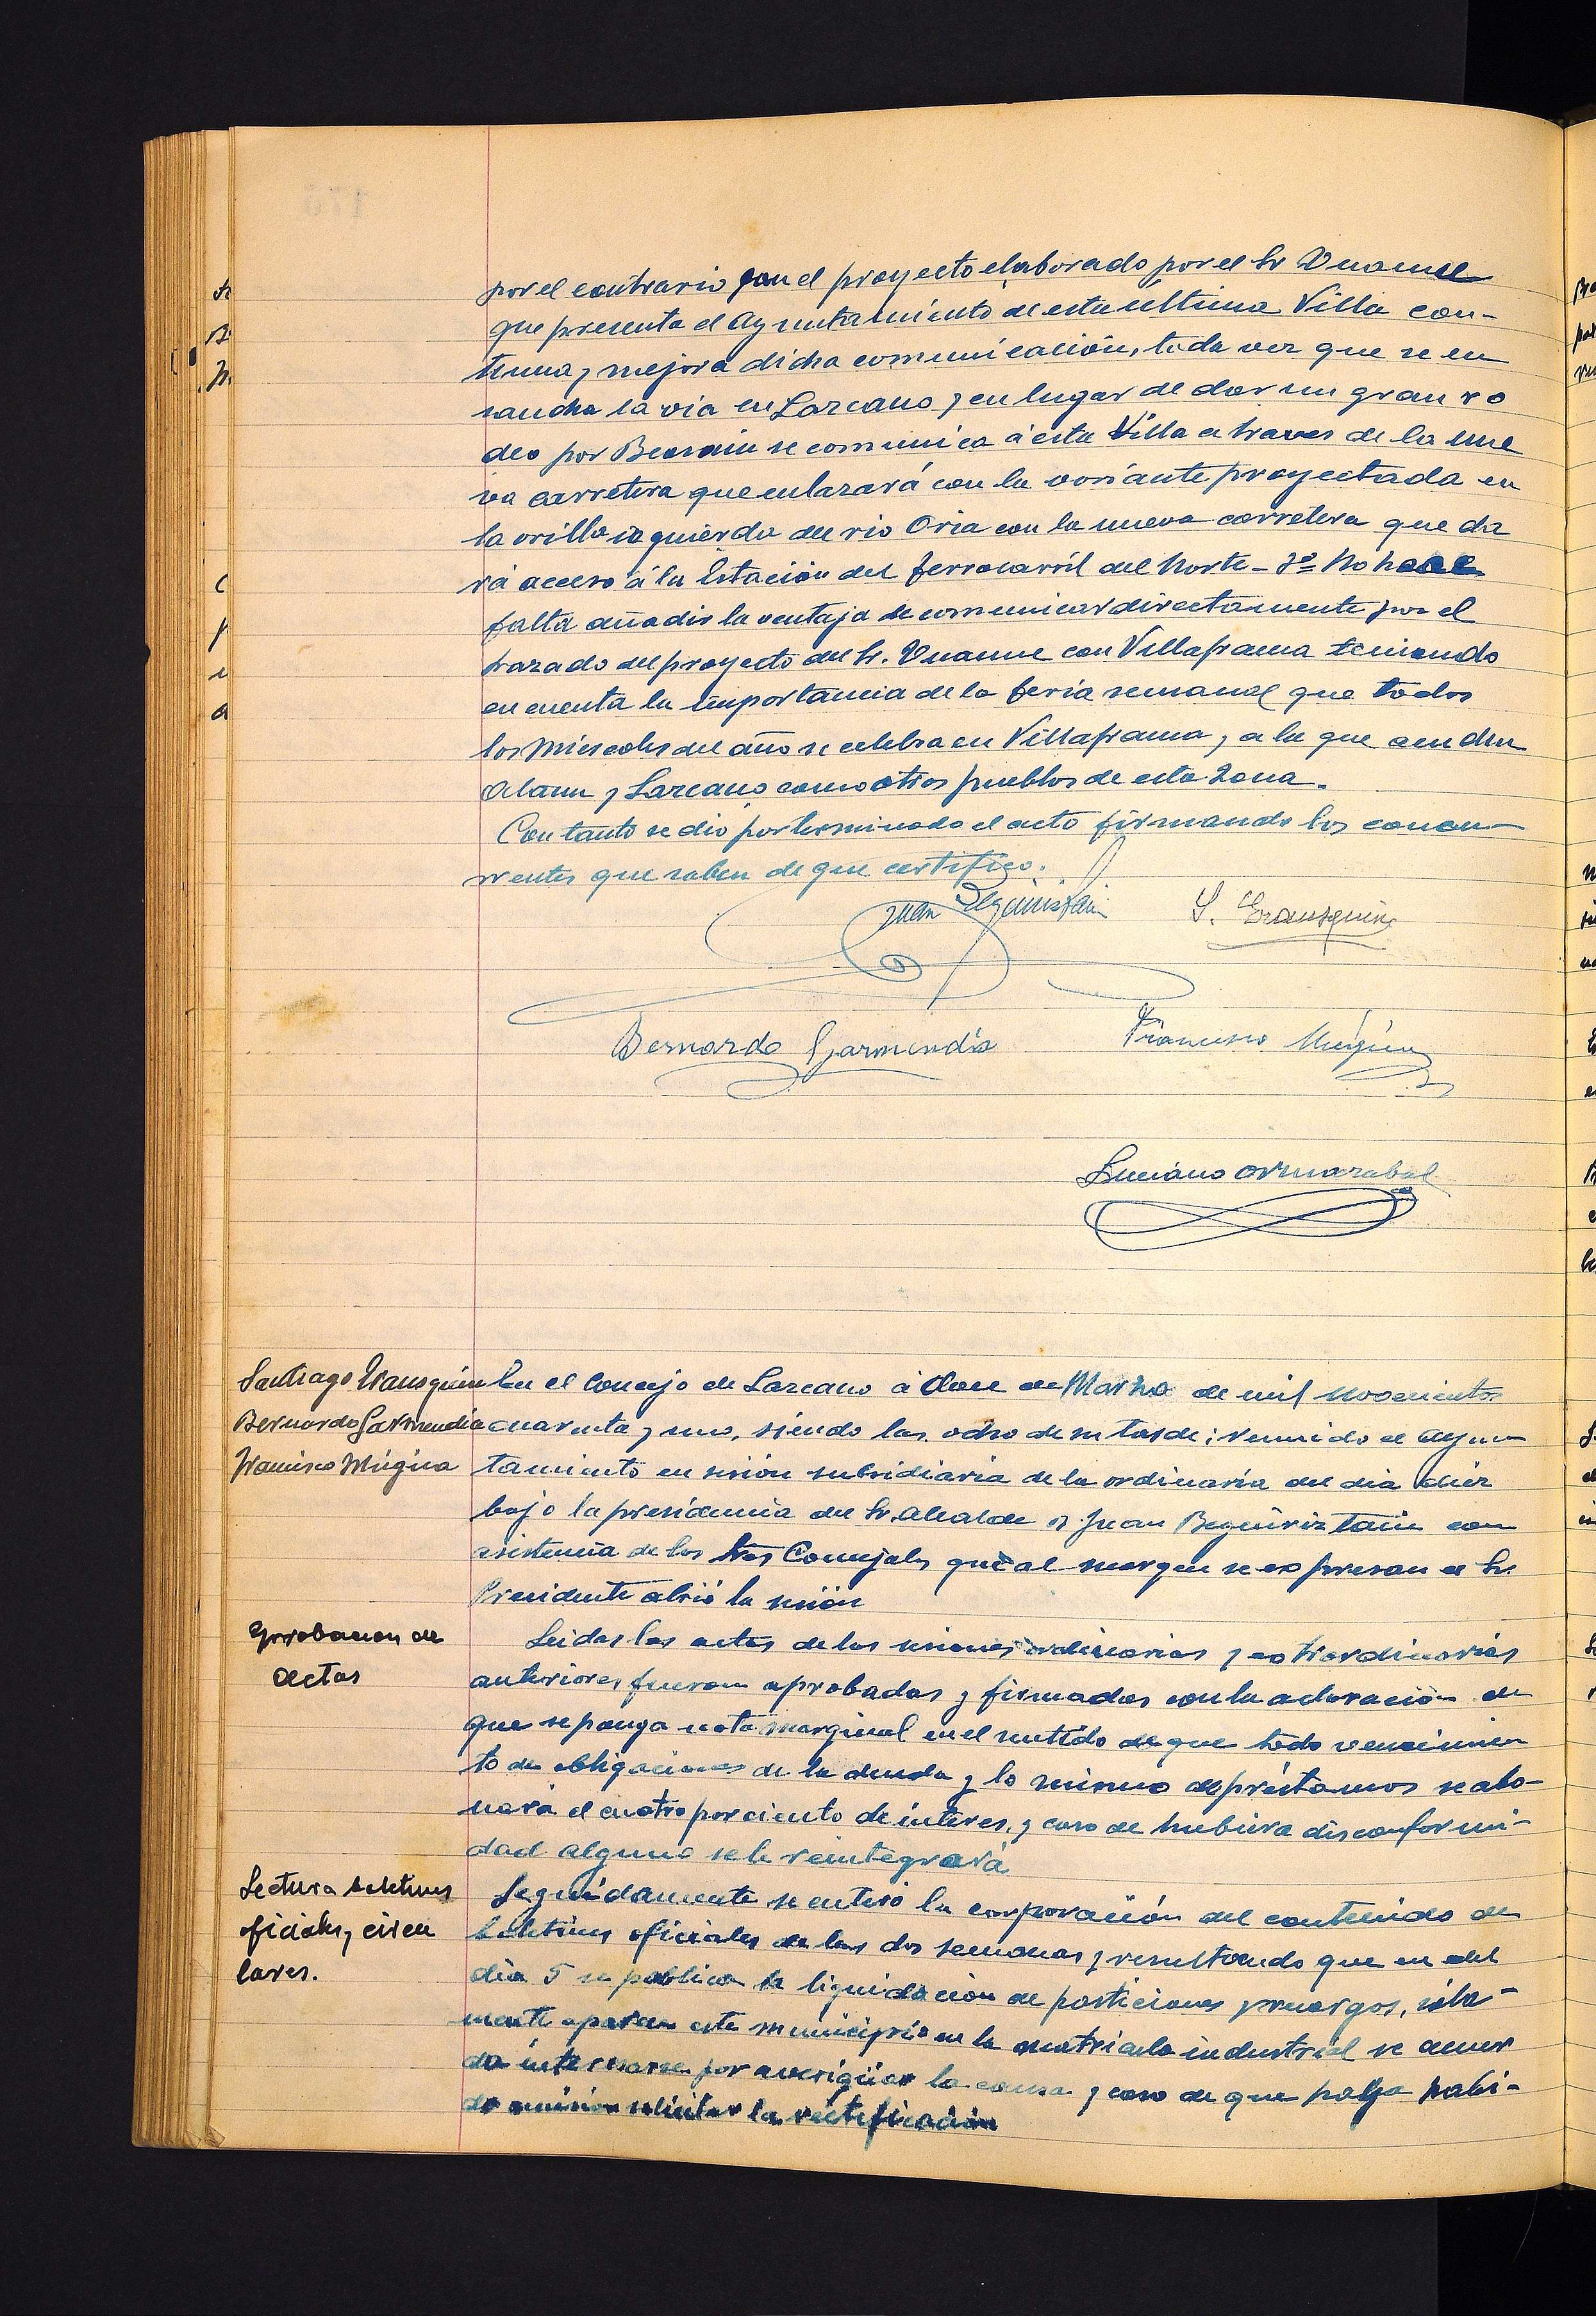 por el contrario con el proyecto elaborado por el Sr Unanue
que presenta el Ayuntamiento de esta ultima Villa con-
tinua y mejora dicha comunicación, toda vez que se en
sancha la via en Lazcano y en lugar de dar un gran ro
deo por Beasain se comunica á esta Villa a traves de la nue
va carretera que enlazará con la variante proyectada en
la orilla izquierda del rio Oria con la nueva carretera que da
rá acceso á la Estación del ferrocarril del Norte - 3º No hace
falta añadir la ventaja de comunicar directamente por el
trazado del proyecto del Sr. Unanue con Villafranca teniendo
en cuenta la importancia de la feria semanal que todos
los Miercoles del año se celebra en Villafranca, a la que acuden
Ataun y Lazcano como otros pueblos de esta Zona.
Con tanto se dio por terminado el acto firmando los concu-
rrentes que saben de que certifico.
Juan S. Erausquin
Bernardo Garmendia Francisco Múgica
Luciano Ormazabal
Santiago Erausquin
Bernardo Garmendia
Francisco Múgica
En el Concejo de Lazcano á doce de Marzo de mil novecientos
cuarenta y uno, siendo las ocho de su tarde; reunido el Ayun
tamiento en sesión subsidiaria de la ordinaria del dia diez
bajo la presidencia del Sr. Alcalde D. Juan Beguiriztain con
asistencia de los tres Concejales que al margen se expresan el Sr.
Presidente abrió la sesión
Aprobacion de
Actas
Leidas las actas de las sesiones ordinarias y extraordinarias
anteriores fueron aprobadas y firmadas con la aclaración de
que se ponga nota marginal en el sentido de que todo vencimien
to de obligaciones de la deuda y lo mismo de préstamos se abo-
nará el cuatro por ciento de interes, y caso de hubiera disconformi-
dad alguna se le reintegrará
Lectura boletines
oficiales y circu
lares.
Seguidamente se enteró la corporación del contenido de
boletines oficiales de las dos semanas y resultando que en el del
dia 5 se publica la liquidación de particiones y recargos, sola-
mente aparece este municipio en la matricula industrial se acuer
da interesarse por averigüar la causa y caso de que haya habi-
do omisión solicitar la rectificación